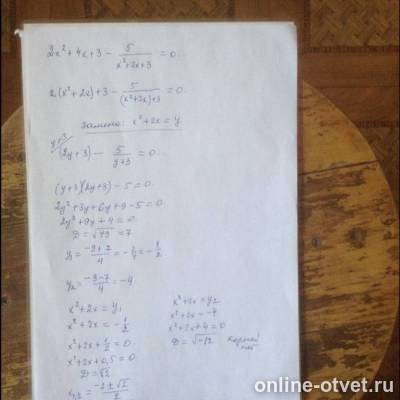 2x² + 4x + 3 - 5/(x²+2x+3) = 0.
2(x² + 2x) + 3 - 5/((x²+2x)+3) = 0.
Замена: x² + 2x = y
y+3/ (2y + 3) - 5/(y+3) = 0.
(y+3)(2y+3) - 5 = 0.
2y² + 3y + 6y + 9 - 5 = 0
2y² + 9y + 4 = 0.
D = √49 = 7
y₁ = (-9+7)/4 = -2/4 = -1/2
y₂ = (-9-7)/4 = -4
x² + 2x = y₁
x² + 2x = -1/2
x² + 2x + 1/2 = 0.
x² + 2x + 0,5 = 0
D = √2
x₁,₂ = (-2 ± √2)/2
x² + 2x = y₂
x² + 2x = -4
x² + 2x + 4 = 0
D = √-12 корней нет
online-otvet.ru